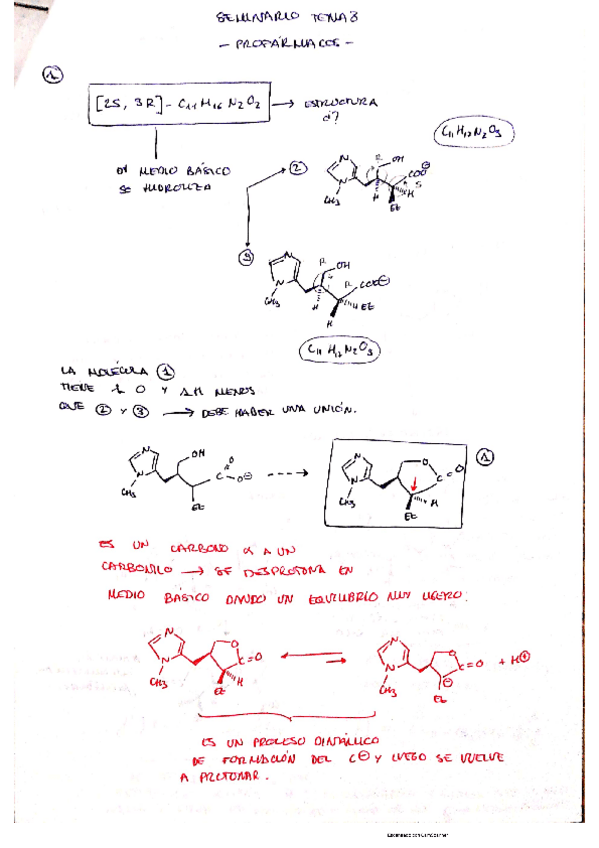 SEMINARIO TEMA 3
- PROFÁRMACOS -
1
[2S, 3R] - C11 H16 N2O2 → ESTRUCTURA
d?
C11 H17 N2O3
EN MEDIO BÁSICO
SE HIDROLIZA
2
N
N
CH3
R
OH
COO⊖
S
H
H
Et
3
N
N
CH3
R
OH
R
COO⊖
Et
H
H
C11 H17 N2O3
LA MOLÉCULA 1
TIENE 1 O Y 1H MENOS
QUE 2 Y 3 → DEBE HABER UNA UNIÓN.
N
N
CH3
OH
C
O
O⊖
Et
N
N
CH3
O
C
O
H
Et
1
ES UN CARBONO α A UN
CARBONILO → SE DESPROTONA EN
MEDIO BÁSICO DANDO UN EQUILIBRIO MUY LIGERO.
N
N
CH3
O
C=O
H
Et
N
N
CH3
O
C=O
⊖
Et
+ H⊕
ES UN PROCESO DINÁMICO
DE FORMACIÓN DEL C⊖ Y LUEGO SE VUELVE
A PROTONAR.
Escaneado con CamScanner